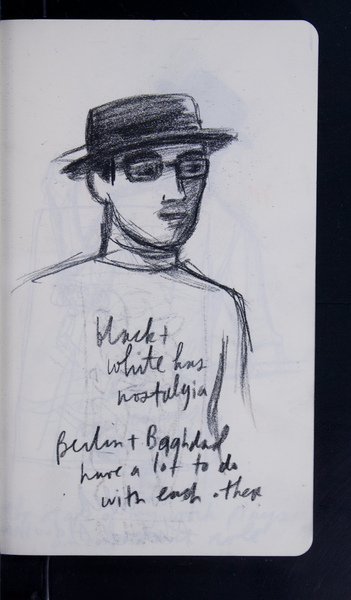 black +
white has
nostalgia
Berlin + Baghdad
have a lot to do
with each other